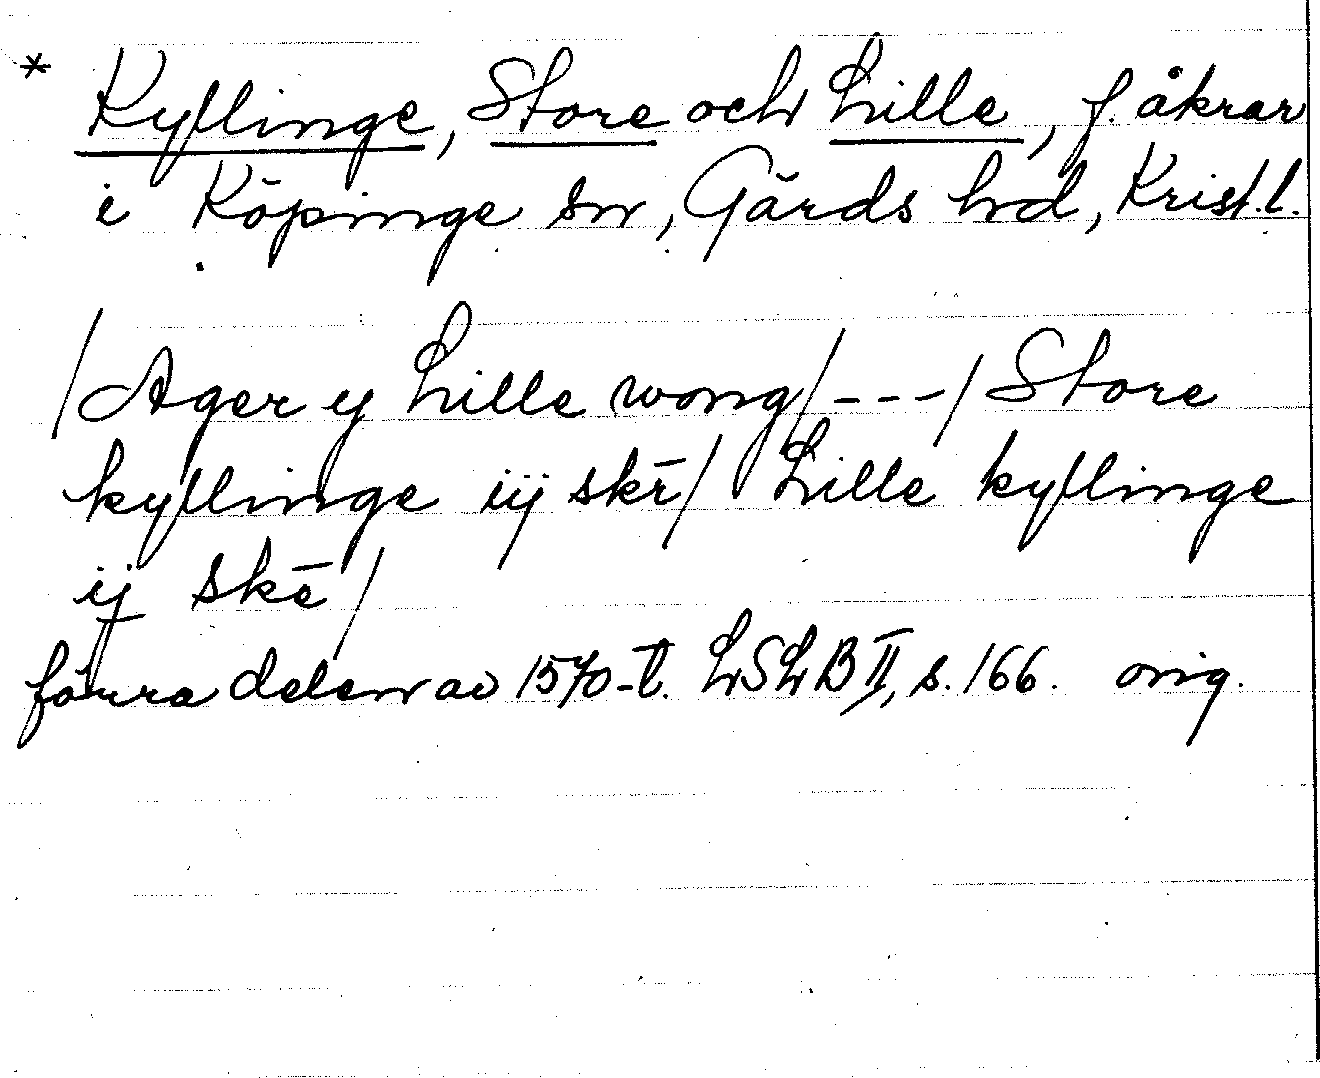 * Kyllinge, Store och Lille, f. åkrar
i Köpinge sn, Gärds hd, Krist.l.
/Ager y Lille wong/---/Store
kyllinge iij skē/ Lille kyllinge
ij skē/
förra delen av 1570-t. LSLB II, s. 166. orig.